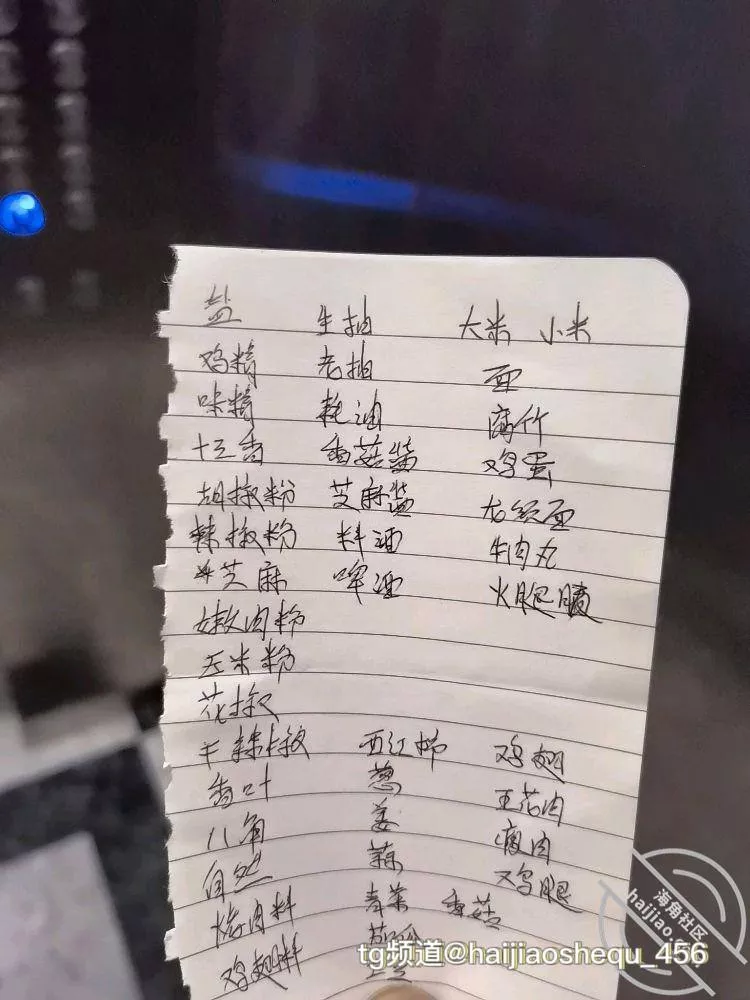 盐 生抽 大米 小米
鸡精 老抽 面
味精 耗油 腐竹
十三香 香菇酱 鸡蛋
胡椒粉 芝麻酱 龙须面
辣椒粉 料酒 牛肉丸
芝麻 啤酒 火腿肠
嫩肉粉
玉米粉
花椒
干辣椒 西红柿 鸡翅
香叶 葱 五花肉
八角 姜 瘦肉
自然 蒜 鸡腿
烤肉料 青菜 香菇
鸡翅料
海角社区
haijiao.
tg频道@haijiaoshequ_456